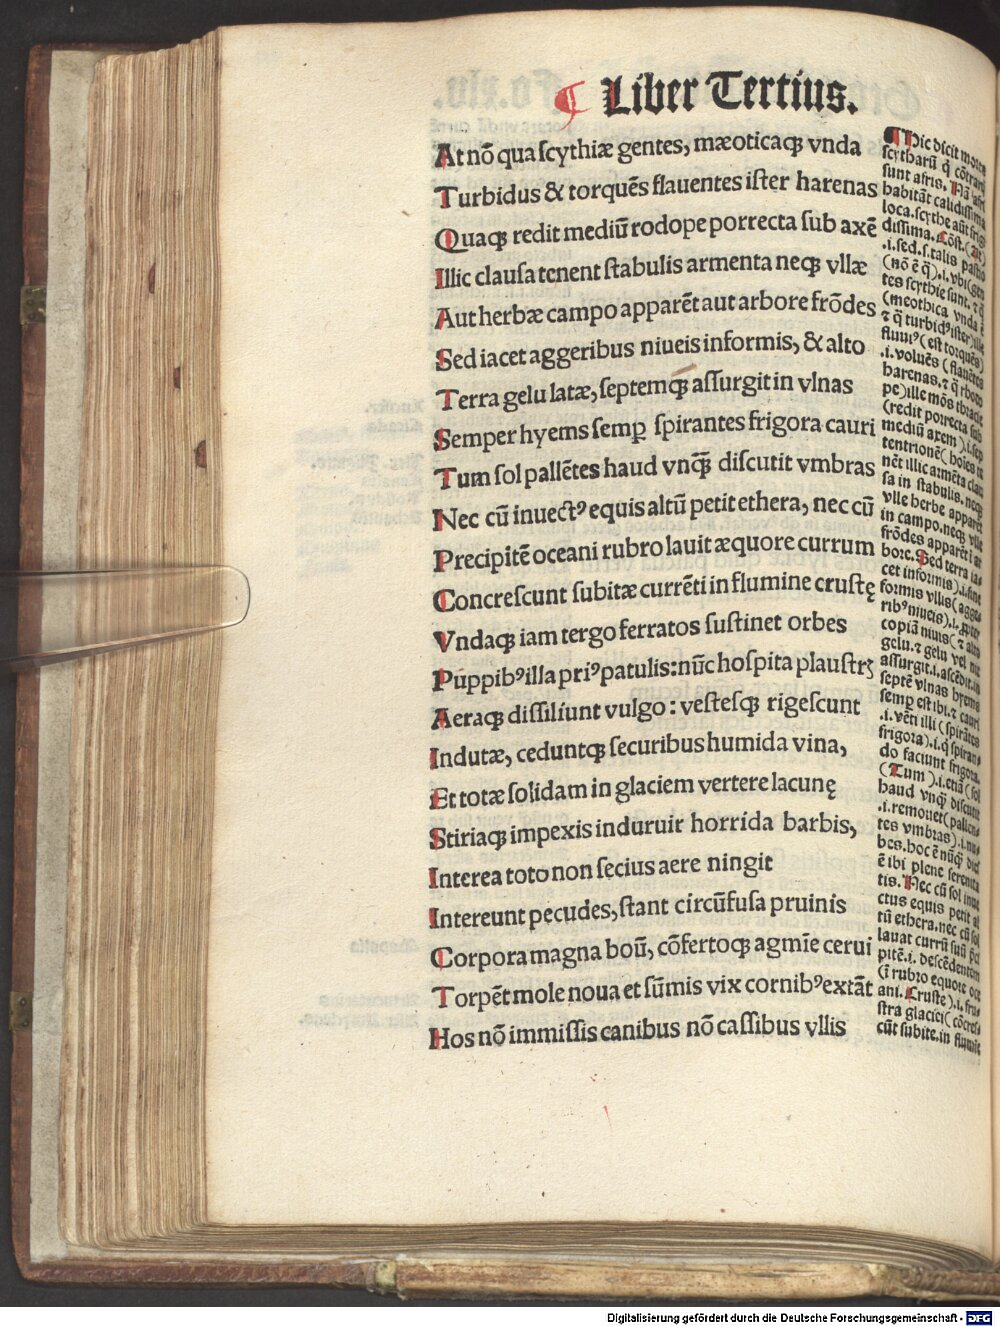 ¶ Liber Tertius.
At nō qua ſcythiæ gentes, mæoticaqꝫ vnda
Turbidus & torquēs flauentes iſter harenas
Quaqꝫ redit mediū rodope porrecta ſub axē
Illic clauſa tenent ſtabulis armenta neqꝫ vllæ
Aut herbæ campo apparēt aut arbore frōdes
Sed iacet aggeribus niueis informis, & alto
Terra gelu latæ, ſeptemqꝫ aſſurgit in vlnas
Semper hyems ſemꝑ ſpirantes frigora cauri
Tum ſol pallētes haud vnqͣꝫ diſcutit vmbras
Nec cū inuectꝰ equis altū petit ethera, nec cū
Precipitē oceani rubro lauit æquore currum
Concreſcunt ſubitæ currēti in flumine cruſtę
Vndaqꝫ iam tergo ferratos ſuſtinet orbes
Puppibꝰ illa priꝰ patulis: nūc hoſpita plauſtrꝫ
Aeraqꝫ diſſiliunt vulgo: veſteſqꝫ rigeſcunt
Indutæ, ceduntqꝫ ſecuribus humida vina,
Et totæ ſolidam in glaciem vertere lacunę
Stiriaqꝫ impexis induruir horrida barbis,
Interea toto non ſecius aere ningit
Intereunt pecudes, ſtant circūfuſa pruinis
Corpora magna boū, cōfertoqꝫ agmīe cerui
Torpēt mole noua et ſūmis vix cornibꝰ extāt
Hos nō immiſſis canibus nō caſſibus vllis
¶ Hic dſcit mores
ſcytharū q̄ cōtrarij
ſunt afris. Nā afri
habitāt calidiſſima
loca. ſcythe aūt frigi
diſſima. Cōſt. (At)
.i. ſed. ſ. talis paſtio
(nō ē q̄).i. vbi (gen
tes ſcythie ſunt. ⁊ q̄
(meothica vnda ē
⁊ q̄ turbidꝰ iſter) ille
fluuiꝰ (eſt torquēs)
.i. voluēs (flauētes
harenas. ⁊ q̄ rhodo
pe) ille mōs thracie
(redit porrecta ſub
mediū axem).i. ſep
tentrionē (boies te
nēt illic armēta clau
ſa in ſtabulis. neqꝫ
vlle herbe apparēt
in campo. neqꝫ vlle
frōdes apparēt ī ar
bore. Sed terra ia
cet informis).i. ſine
formis vllis (agge
ribꝰ niueis).i. ꝓpter
copiā niuis (⁊ alto
gelu. ⁊ gelu vel niue
aſſurgit.i. aſcēdit. in
ſeptē vlnas hyems
ſemꝑ eſt ibi. ⁊ cauri
.i. vēti illi (ſpirātes
frigora).i. q̄ ſpiran
do faciunt frigora.
(Tum).i. etiā (ſol
haud vnqͣꝫ diſcutit
.i. remouet (pallen
tes vmbras).i. nu
bes. hoc ē nūqͣꝫ dies
ē ibi plene ſerenita
tis. Nec cū ſol inue
ctus equis petit al
tū ethera. nec cū ſol
lauat currū ſuū p̄ci
pitē.i. deſcēdentem
(ī rubro equore oce
ani. Cruſte).i. fru
ſtra glaciei (cōcreſ
cūt ſubite. in flumīe
Digitalisierung gefördert durch die Deutsche Forschungsgemeinschaft - DFG